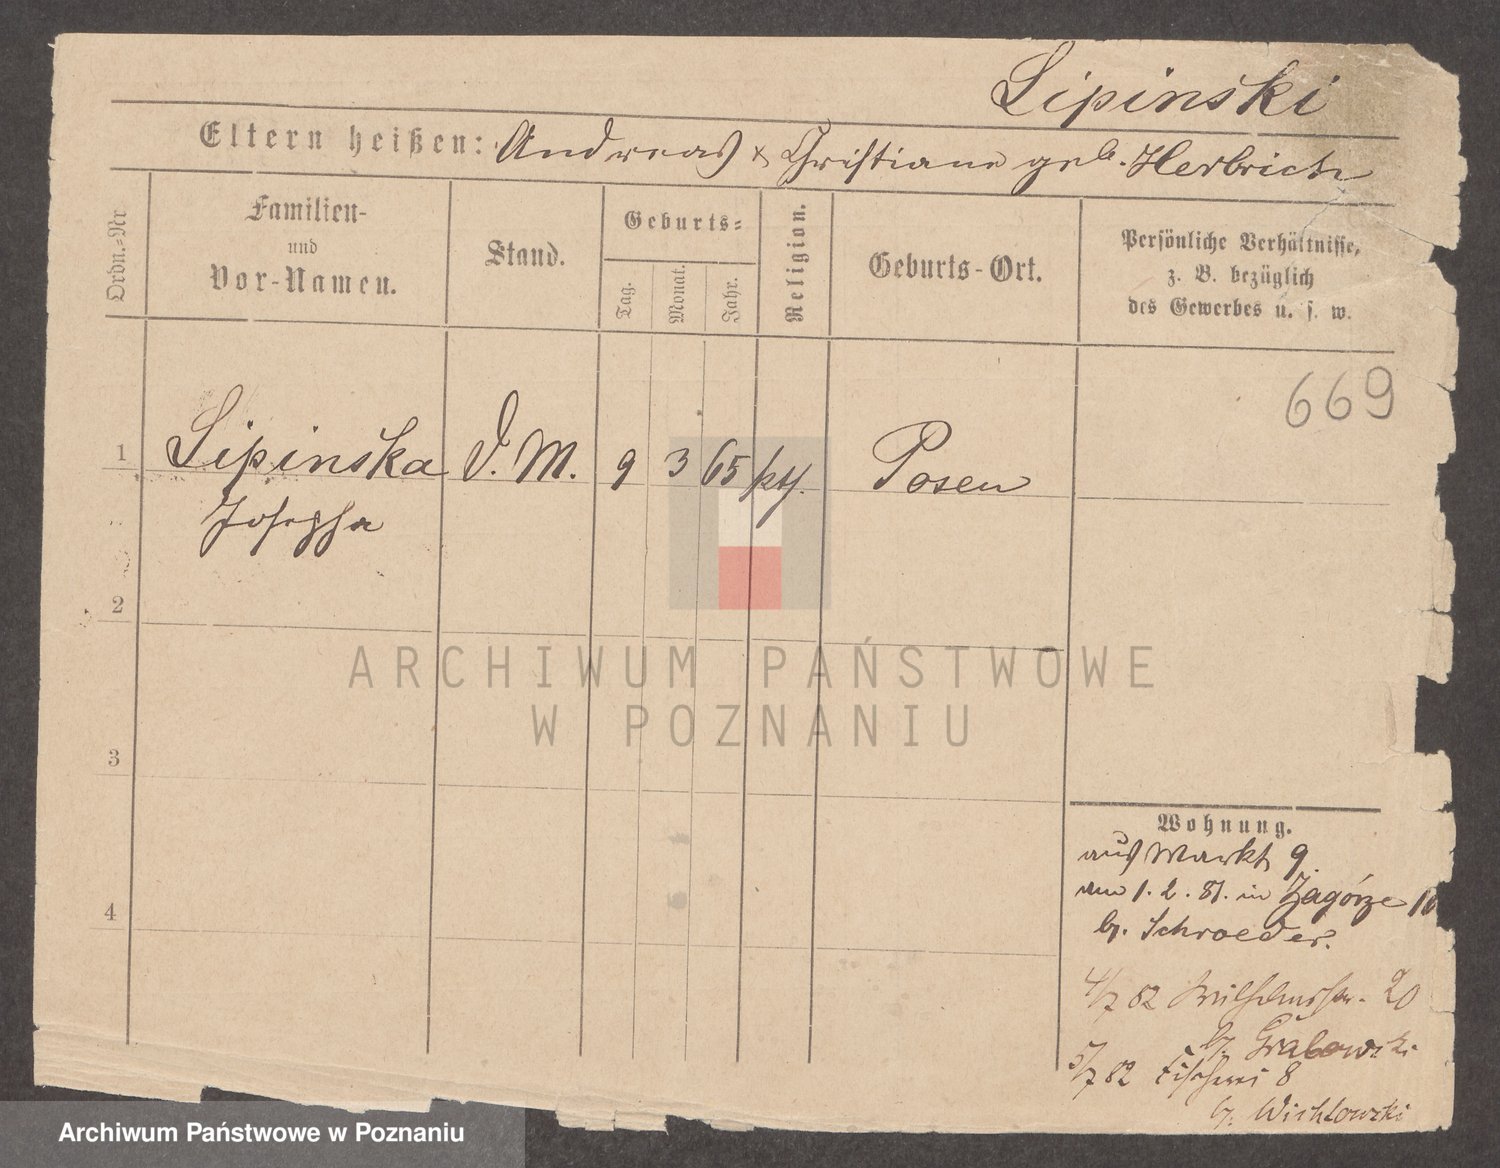 Lipinski
Eltern heißen: Andreas & Christiane geb. Herbrich
Ordn.=Nr
Familien-
und
Vor-Namen.
Stand.
Geburts=
Tag.
Monat.
Jahr.
Religion.
Geburts-Ort.
Persönliche Verhältnisse,
z. B. bezüglich
des Gewerbes u. s. w.
669
1
Lipinska D. M. 9 3 65 kth. Posen
Josepha
2
3
4
ARCHIWUM PAŃSTWOWE
W POZNANIU
Wohnung.
aus Markt 9.
am 1. 2. 81. in Zagórze
b. Schroeder.
4/7 82 Wilhelmstr. 20
b. Grabowski
5/7 82 Fischerei 8
b. Wichlowski
Archiwum Państwowe w Poznaniu